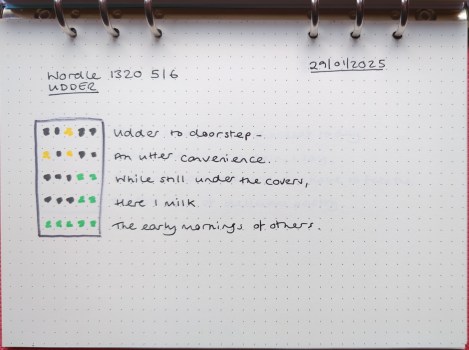 29/01/2025
Wordle 1320 5/6
UDDER
Udder to doorstep –
An utter convenience.
While still under the covers,
Here I milk
The early mornings of others.